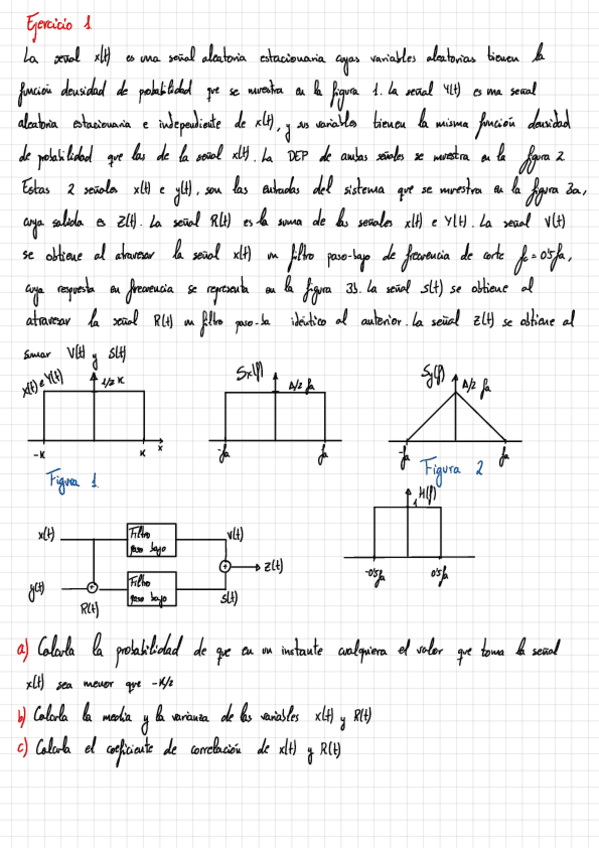 Ejercicio 1
La señal x(t) es una señal aleatoria estacionaria cuyas variables aleatorias tienen la
función densidad de probabilidad que se muestra en la figura 1. La señal Y(t) es una señal
aleatoria estacionaria e independiente de x(t), y sus variables tienen la misma función densidad
de probabilidad que las de la señal x(t). La DEP de ambas señales se muestra en la figura 2
Estas 2 señales x(t) e y(t), son las entradas del sistema que se muestra en la figura 3a,
cuya salida es Z(t). La señal R(t) es la suma de las señales x(t) e Y(t). La señal V(t)
se obtiene al atravesar la señal x(t) un filtro paso-bajo de frecuencia de corte fc = 0'5fa,
cuya respuesta en frecuencia se representa en la figura 3b. La señal s(t) se obtiene al
atravesar la señal R(t) un filtro paso-ba idéntico al anterior. La señal z(t) se obtiene al
sumar V(t) y s(t)
x(t) e Y(t) 1/2 K
-K K x
Figura 1.
Sx(f) A/2 fa
-fa fa
Sy(f) A/2 fa
-fa fa
Figura 2
H(f)
1
-0'5fa 0'5fa
x(t) Filtro paso bajo V(t)
z(t)
y(t) Filtro paso bajo s(t)
R(t)
a) Calcula la probabilidad de que en un instante cualquiera el valor que toma la señal
x(t) sea menor que -K/2
b) Calcula la media y la varianza de las variables x(t) y R(t)
c) Calcula el coeficiente de correlación de x(t) y R(t)